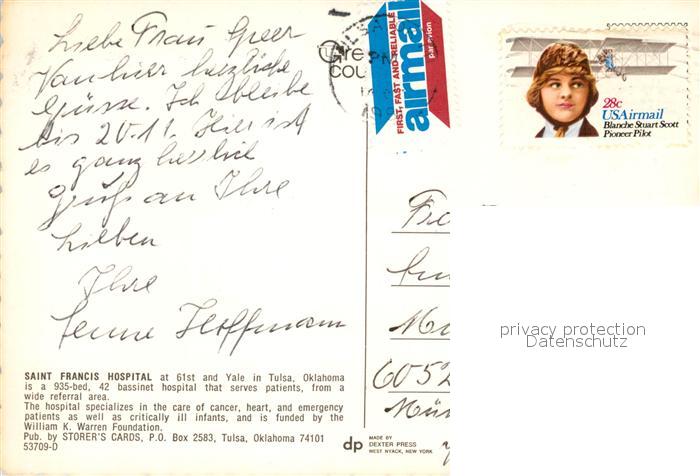 Liebe Frau Greer
Von hier herzliche
Grüsse. Ich bleibe
bis 20.11. Hier ist
es ganz herrlich
Gruß an Ihre
Lieben
Ihre
Hoffmann
SAINT FRANCIS HOSPITAL at 61st and Yale in Tulsa, Oklahoma
is a 935-bed, 42 bassinet hospital that serves patients, from a
wide referral area.
The hospital specializes in the care of cancer, heart, and emergency
patients as well as critically ill infants, and is funded by the
William K. Warren Foundation.
Pub. by STORER'S CARDS, P.O. Box 2583, Tulsa, Oklahoma 74101
53709-D
dp
MADE BY
DEXTER PRESS
WEST NYACK, NEW YORK
PM
FIRST, FAST AND RELIABLE
airmail
Par avion
28c
USAirmail
Blanche Stuart Scott
Pioneer Pilot
6052
privacy protection
Datenschutz